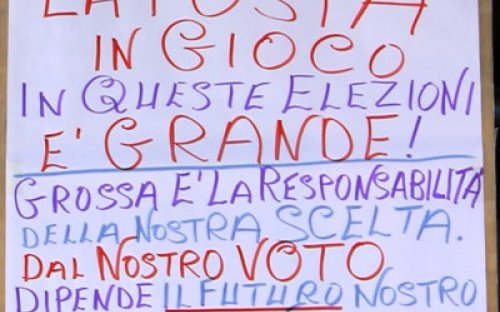 LA POSTA
IN GIOCO
IN QUESTE ELEZIONI
E' GRANDE!
GROSSA E' LA RESPONSABILITÀ
DELLA NOSTRA SCELTA.
DAL NOSTRO VOTO
DIPENDE IL FUTURO NOSTRO